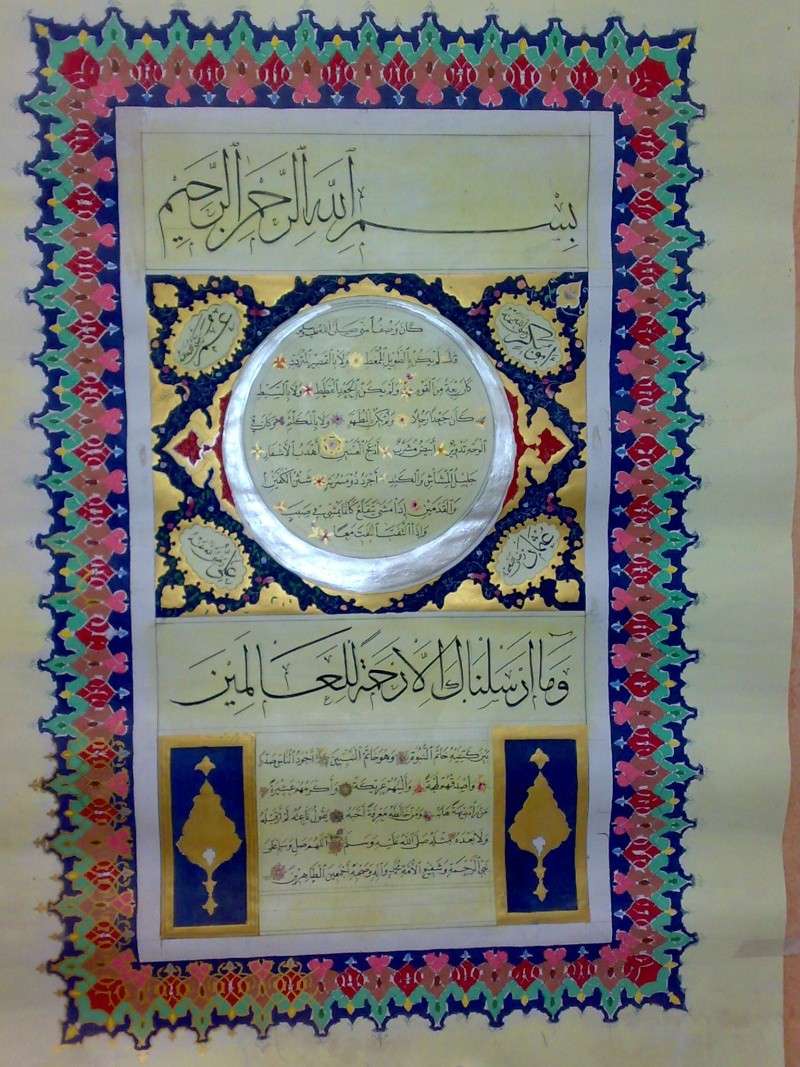 بسم الله الرحمن الرحيم
عمر رضي الله عنه
ابو بكر رضي الله عنه
كان صلى الله عليه
لم يكن بالطويل الممغط ولا بالقصير المتردد
كان ربعة من القوم ولم يكن بالجعد القطط ولا بالسبط
كان جعدا رجلا ولم يكن بالمطهم ولا بالمكلثم وكان في
الوجه تدوير أبيض مشرب أدعج العينين أهدب الأشفار
جليل المشاش والكتد أجرد ذو مسربة شثن الكفين
والقدمين إذا مشى تقلع كأنما يمشي في صبب
وإذا التفت التفت معا
علي رضي الله عنه
عثمان رضي الله عنه
وما أرسلناك إلا رحمة للعالمين
بين كتفيه خاتم النبوة وهو خاتم النبيين أجود الناس صدرا
وأصدقهم لهجة وألينهم عريكة وأكرمهم عشيرة
من رآه بديهة هابه ومن خالطه معرفة أحبه يقول ناعته لم أر قبله
ولا بعده مثله صلى الله عليه وسلم اللهم صل وسلم على
نبي الرحمة وشفيع الأمة محمد وآله وصحبه أجمعين الطاهرين